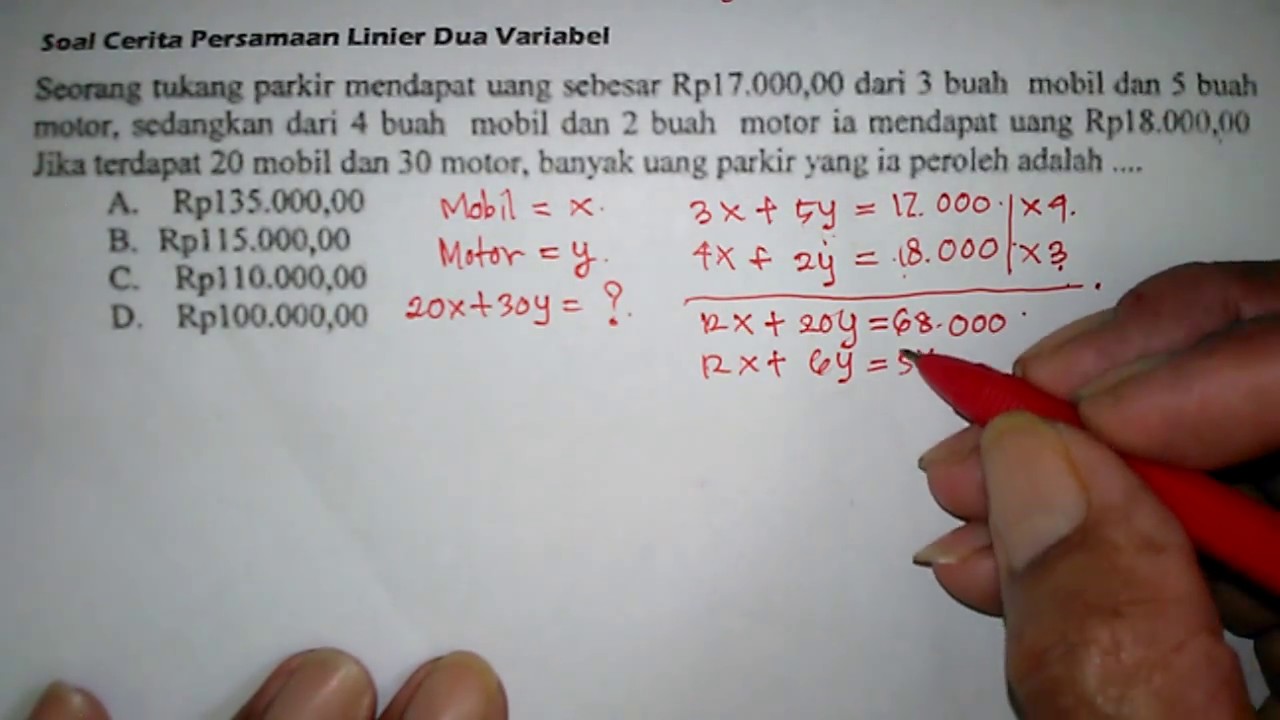 Soal Cerita Persamaan Linier Dua Variabel
Seorang tukang parkir mendapat uang sebesar Rp17.000,00 dari 3 buah mobil dan 5 buah
motor, sedangkan dari 4 buah mobil dan 2 buah motor ia mendapat uang Rp18.000,00
Jika terdapat 20 mobil dan 30 motor, banyak uang parkir yang ia peroleh adalah ....
A. Rp135.000,00
B. Rp115.000,00
C. Rp110.000,00
D. Rp100.000,00
Mobil = x.
Motor = y.
20x + 30y = ?
3x + 5y = 17.000 | x 4.
4x + 2y = 18.000 | x 3
12x + 20y = 68.000
12x + 6y =